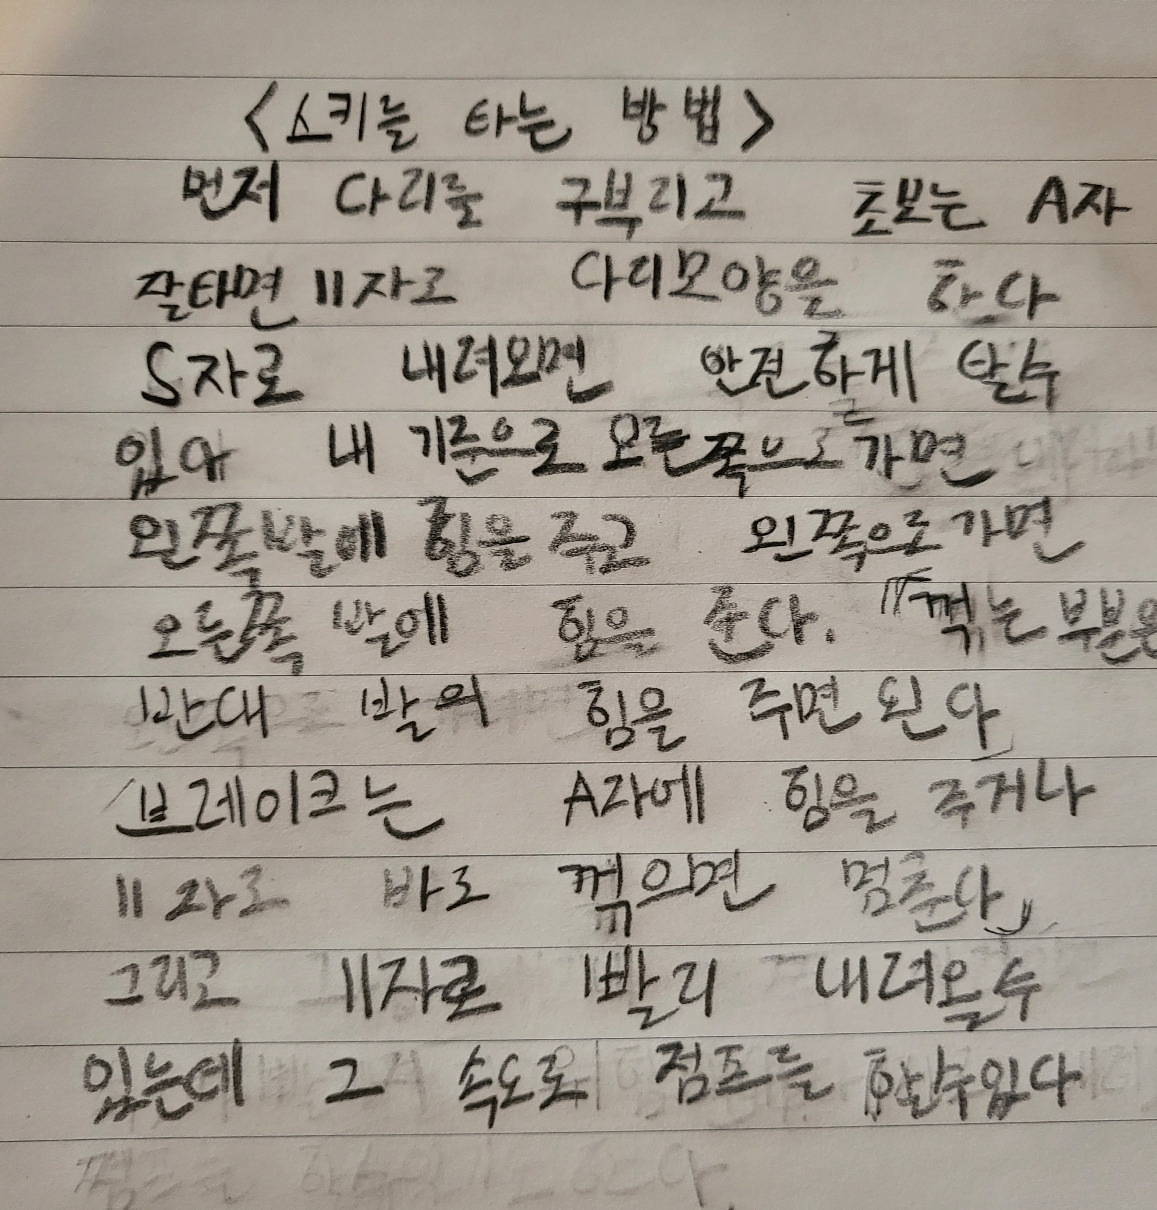 <스키를 타는 방법>
먼저 다리를 구부리고 초보는 A자
잘타면 11자로 다리모양을 한다
S자로 내려오면 안전하게 탈수
있다 내 기준으로 오른쪽으로 가면
왼쪽발에 힘을 주고 왼쪽으로 가면
오른쪽 발에 힘을 준다. 꺾는 부분은
반대 발의 힘을 주면 된다
브레이크는 A자에 힘을 주거나
11자로 바로 꺾으면 멈춘다
그리고 11자로 빨리 내려올수
있는데 그 속도로 점프를 할수있다